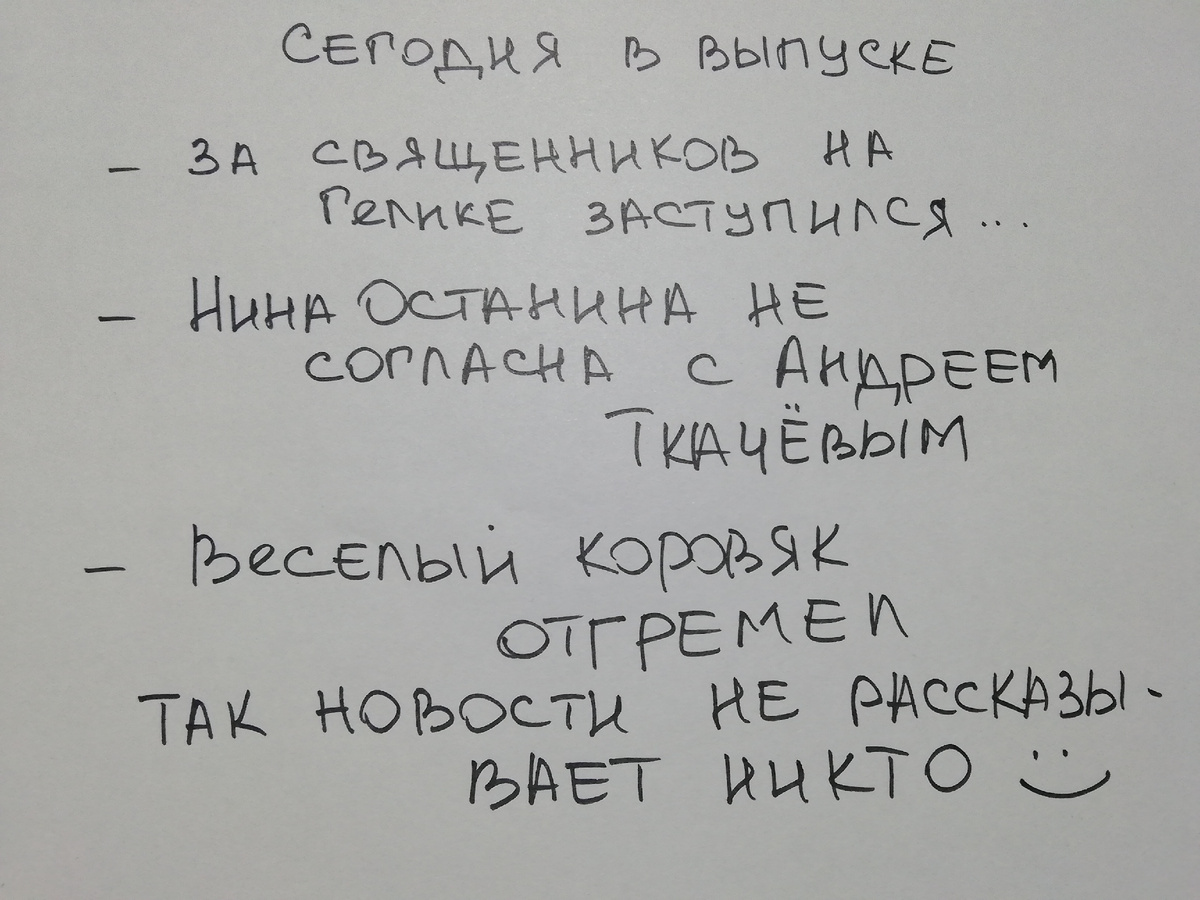 Сегодня в выпуске
- За священников на
Гелике заступился...
- Нина Останина не
согласна с Андреем
Ткачёвым
- Веселый коровяк
отгремел
Так новости не рассказы-
вает никто :)